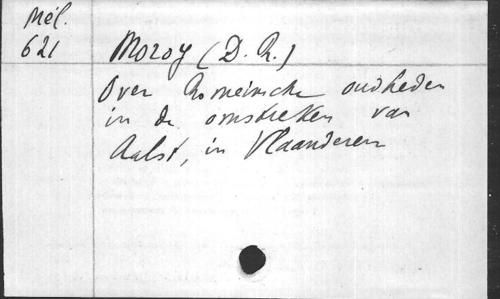 Mél.
621
Moroy (D. R.)
Over Romeinsche oudheden
in de omstreken van
Aalst, in Vlaanderen